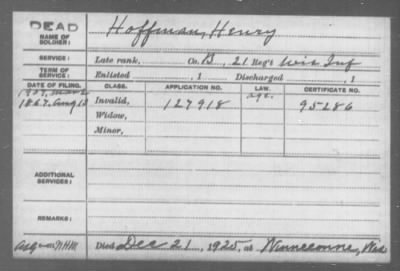 DEAD
NAME OF SOLDIER: Hoffman, Henry
SERVICE: Late rank, Co. B, 21 Reg't Wis Inf
TERM OF SERVICE: Enlisted , 1 Discharged , 1
DATE OF FILING. CLASS. APPLICATION NO. LAW. CERTIFICATE NO.
1867, Aug 10 Invalid, 127918 age. 95286
Widow,
Minor,
ADDITIONAL SERVICES:
REMARKS:
Died Dec 21, 1925, at Winneconne, Wis